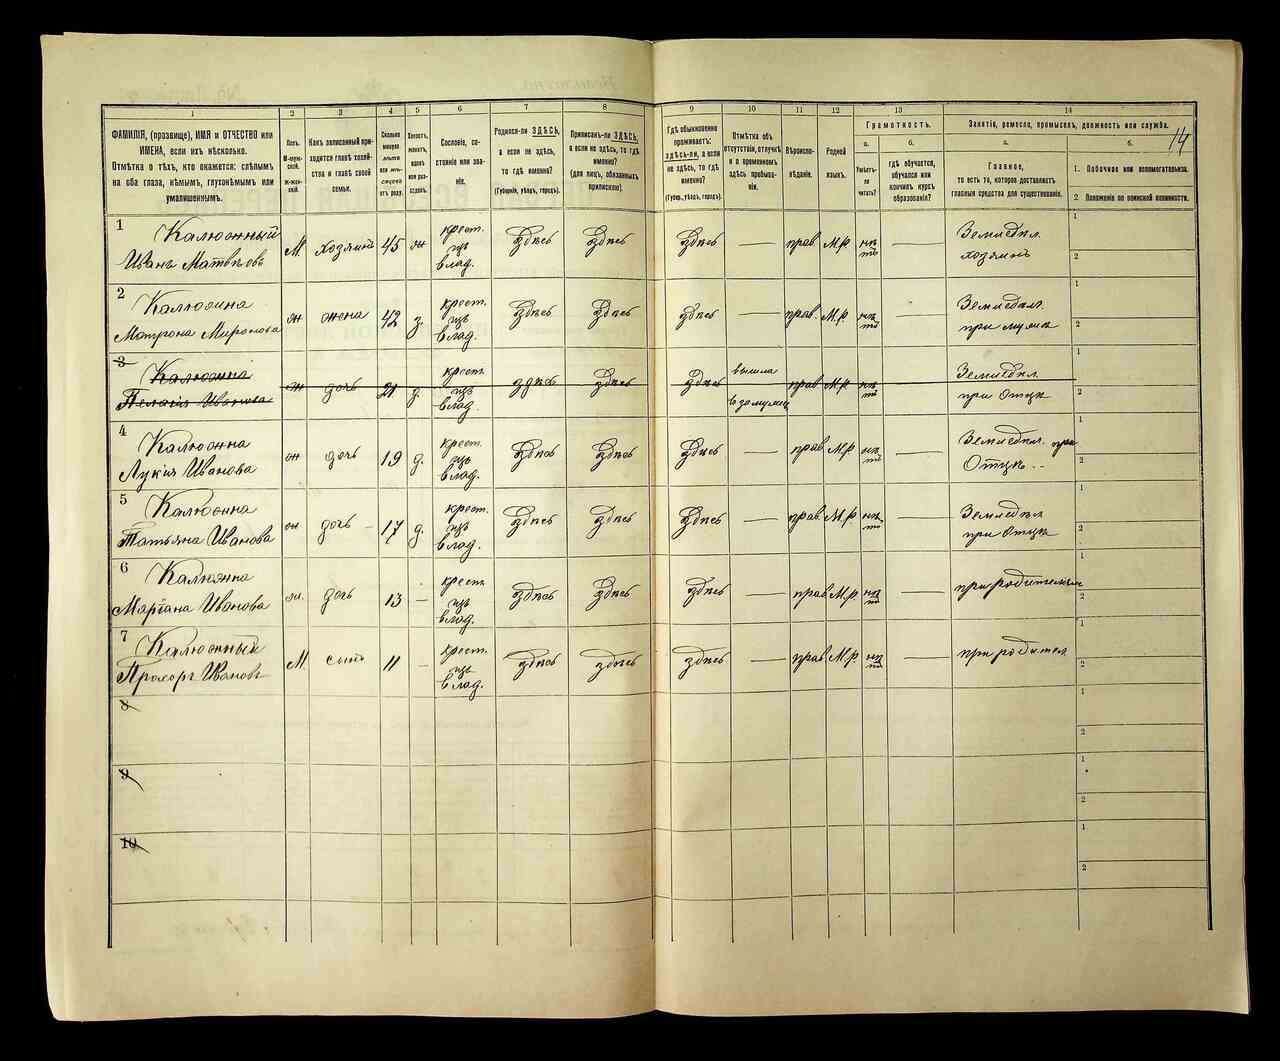 1 2 3 4 5 6 7 8 9 10 11 12 13 14
ФАМИЛІЯ, (прозвище), ИМЯ и ОТЧЕСТВО или
ИМЕНА, если ихъ нѣсколько.
Отмѣтка о тѣхъ, кто окажется: слѣпымъ
на оба глаза, нѣмымъ, глухонѣмымъ или
умалишеннымъ.
Полъ.
М-муж-
ской.
ж-жен-
ской.
Какъ записанный при-
ходится главѣ хозяй-
ства и главѣ своей
семьи.
Сколько
минуло
лѣтъ
или мѣ-
сяцевъ
отъ роду.
Холостъ,
женатъ,
вдовъ
или раз-
веденъ.
Сословіе, со-
стояніе или зва-
ніе.
Родился-ли ЗДѢСЬ,
а если не здѣсь,
то гдѣ именно?
(Губернія, уѣздъ, городъ).
Приписанъ-ли ЗДѢСЬ,
а если не здѣсь, то гдѣ
именно?
(для лицъ, обязанныхъ
припискою).
Гдѣ обыкновенно
проживаетъ:
здѣсь-ли, а если
не здѣсь, то гдѣ
именно?
(Губерн., уѣздъ, городъ).
Отмѣтка объ
отсутствіи, отлучкѣ
и о временномъ
здѣсь пребыва-
ніи.
Вѣроиспо-
вѣданіе.
Родной
языкъ.
Грамотность.
а.
Умѣетъ-
ли
читать?
б.
гдѣ обучается,
обучался или
кончилъ курсъ
образованія?
Занятіе, ремесло, промыселъ, должность или служба.
14
а.
Главное,
то есть то, которое доставляетъ
главныя средства для существованія.
б.
1. Побочное или вспомогательное.
2 Положеніе по воинской повинности.
1 Калюжный
Иванъ Матвѣевъ М. хозяинъ 45 ж крест. изъ влад. Здѣсь Здѣсь Здѣсь — прав М.р. нѣтъ — Землед\u043bл. хозяинъ 1 2
2 Калюжна
Матрона Миронова ж жена 42 з. крест. изъ влад. Здѣсь Здѣсь здѣсь — прав. М.р. нѣтъ — Земледѣл. при мужѣ 1 2
3 Калюжна
Пелагія Иванова ж дочь 21 д. крест. изъ влад. здѣсь Здѣсь здѣсь вышла в замужъ прав М.р нѣтъ Земледѣл. при Отцѣ 1 2
4 Калюжна
Лукія Иванова ж дочь 19 д. крест. изъ влад. Здѣсь Здѣсь Здѣсь — прав М.р. нѣтъ — Земледѣл. при Отцѣ 1 2
5 Калюжна
Татьяна Иванова ж дочь 17 д. крест. изъ влад. Здѣсь Здѣсь Здѣсь — прав М.р нѣтъ — Земледѣл при Отцѣ 1 2
6 Калюжна
Иванова ж. дочь 13 — крест. изъ влад. Здѣсь Здѣсь здѣсь — прав М.р. нѣтъ — при родителяхъ 1 2
7 Калюжный
Прохоръ Ивановъ М. сынъ 11 — крест. изъ влад. здѣсь здѣсь здѣсь — прав М.р. нѣтъ — при родител 1 2
8 1 2
9 1 2
10 1 2